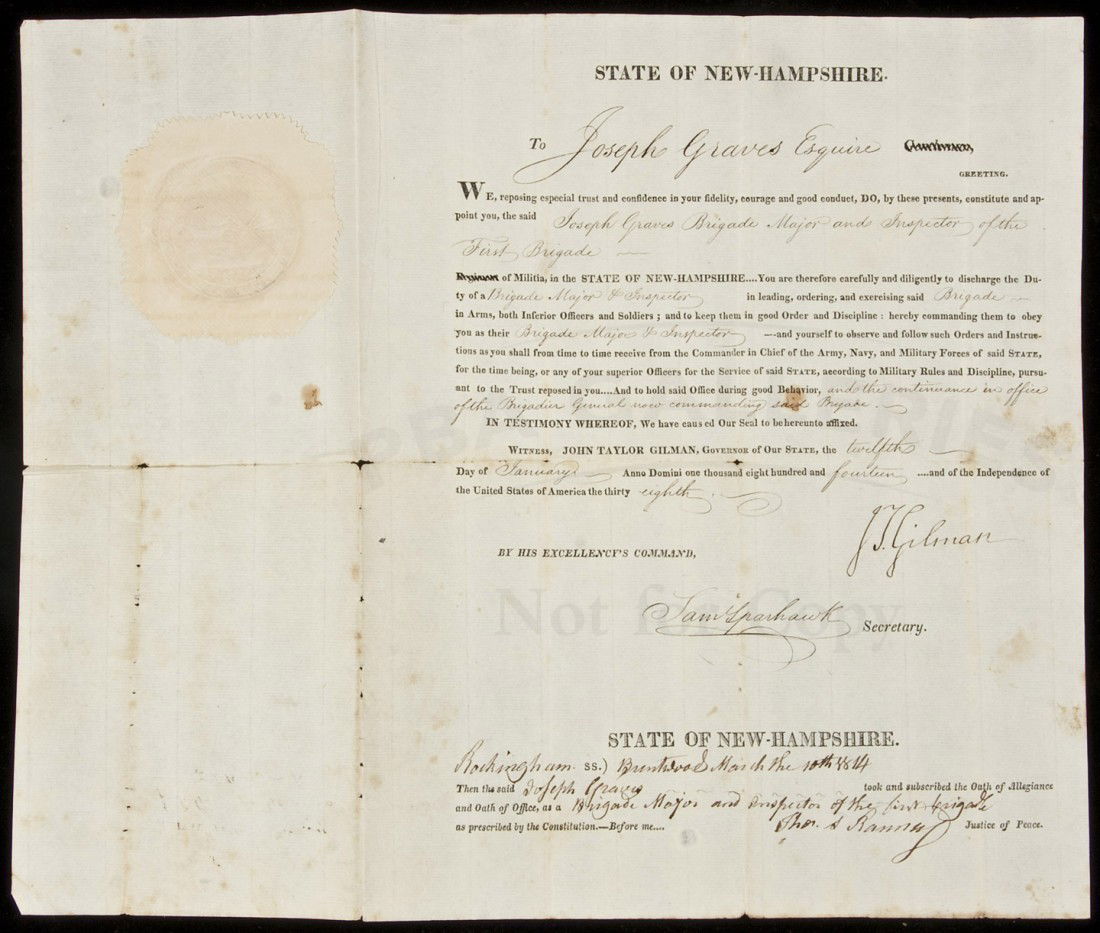 STATE OF NEW-HAMPSHIRE.
To Joseph Graves Esquire Gentleman,
GREETING.
WE, reposing especial trust and confidence in your fidelity, courage and good conduct, DO, by these presents, constitute and ap-
point you, the said Joseph Graves Brigade Major and Inspector of the
First Brigade
of Militia, in the STATE OF NEW-HAMPSHIRE....You are therefore carefully and diligently to discharge the Du-
ty of a Brigade Major & Inspector in leading, ordering, and exercising said Brigade —
in Arms, both Inferior Officers and Soldiers; and to keep them in good Order and Discipline: hereby commanding them to obey
you as their Brigade Major & Inspector —and yourself to observe and follow such Orders and Instruc-
tions as you shall from time to time receive from the Commander in Chief of the Army, Navy, and Military Forces of said STATE,
for the time being, or any of your superior Officers for the Service of said STATE, according to Military Rules and Discipline, pursu-
ant to the Trust reposed in you....And to hold said Office during good Behavior, and the continuance in office
of the Brigadier General now commanding said Brigade.
IN TESTIMONY WHEREOF, We have caused Our Seal to be hereunto affixed.
WITNESS, JOHN TAYLOR GILMAN, GOVERNOR OF OUR STATE, the twelfth
Day of January Anno Domini one thousand eight hundred and fourteen ....and of the Independence of
the United States of America the thirty eighth.
J T Gilman
BY HIS EXCELLENCY'S COMMAND,
Saml Sparhawk Secretary.
Not for Copy
STATE OF NEW-HAMPSHIRE.
Rockingham ss.) Brentwood March the 10th 1814
Then the said Joseph Graves took and subscribed the Oath of Allegiance
and Oath of Office, as a Brigade Major and Inspector of the first brigade
as prescribed by the Constitution.—Before me.... Thos. S Ranney Justice of Peace.